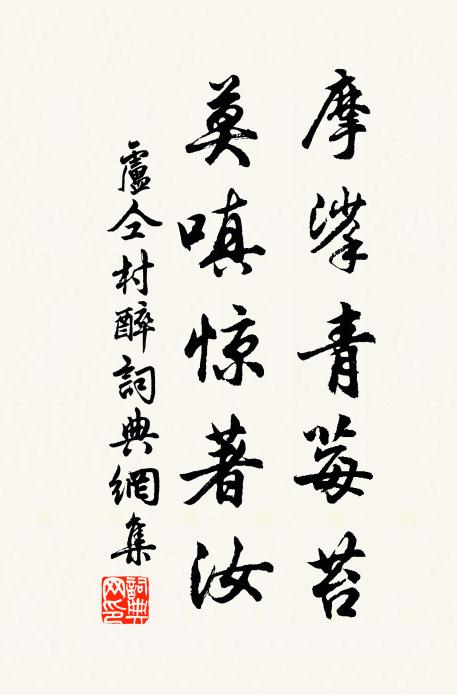 摩挲青莓苔
莫嗔惊著汝
盧仝村醉詞典網集
詞典网印